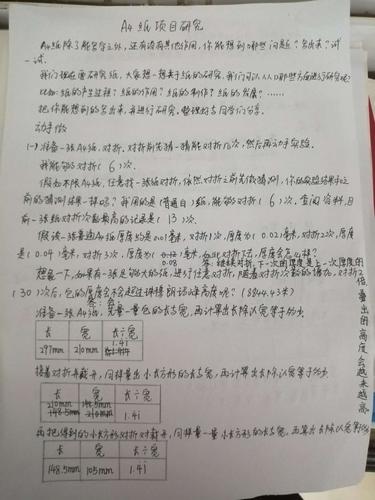 A4纸项目研究
A4纸除了能写字之外,还有没有其他作用,你能想到哪些问题?写出来?试一试。
我们现在要研究纸,大家想一想关于纸的研究,我们可以从哪些方面进行研究呢?
比如:纸的产生过程?纸的作用?纸的制作?纸的发展?……
把你能想到的写出来,并进行研究,整理好与同学们分享。
动手做
(一)准备一张A4纸,对折,对折前先猜一猜能对折几次,然后再动手实验。
我能够对折( 6 )次。
假如不限A4纸,任意找一张纸对折,依然对折之前先做猜测,你的实验结果和之
前的猜测结果一样吗?我用的是(普通白)纸,能够对折( 6 )次,查阅资料,目
前一张纸对折次数最高的记录是( 13 )次。
假设一张普通A4纸厚度约是0.01毫米,对折1次,厚度为( 0.02)毫米,对折2次,厚度
是( 0.04 )毫米,对折3次,厚度为( 0.08 )毫米,如此对折下去,厚度会怎么样?
答:继续对折,下一次的厚度是上一次厚度的
倍量出的高度会越来越高
想象一下,如果有一张足够大的纸,进行任意对折,随着对折次数的增加,对折2
( 30 )次后,它的厚度会不会超过珠穆朗玛峰高度呢?(8844.43米)
答:会
准备一张A4纸,先量一量它的长与宽,再计算出长除以宽等于多少
长 宽 长÷宽
297mm 210mm 1.41
接着对折并裁开,同样量出小长方形的长与宽,再计算出长除以宽等于多少
长 宽 长÷宽
210mm 148.5mm
148.5mm 210mm 1.41
再把得到的小长方形对折对裁开,同样量一量小长方形的长与宽,再算出长除以宽等于多少
长 宽 长÷宽
148.5mm 105mm 1.41